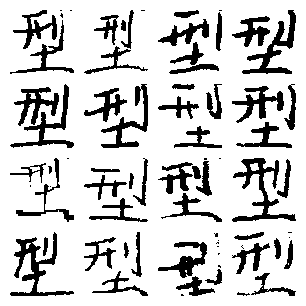 型型型型
型型型型
型型型型
型型型型